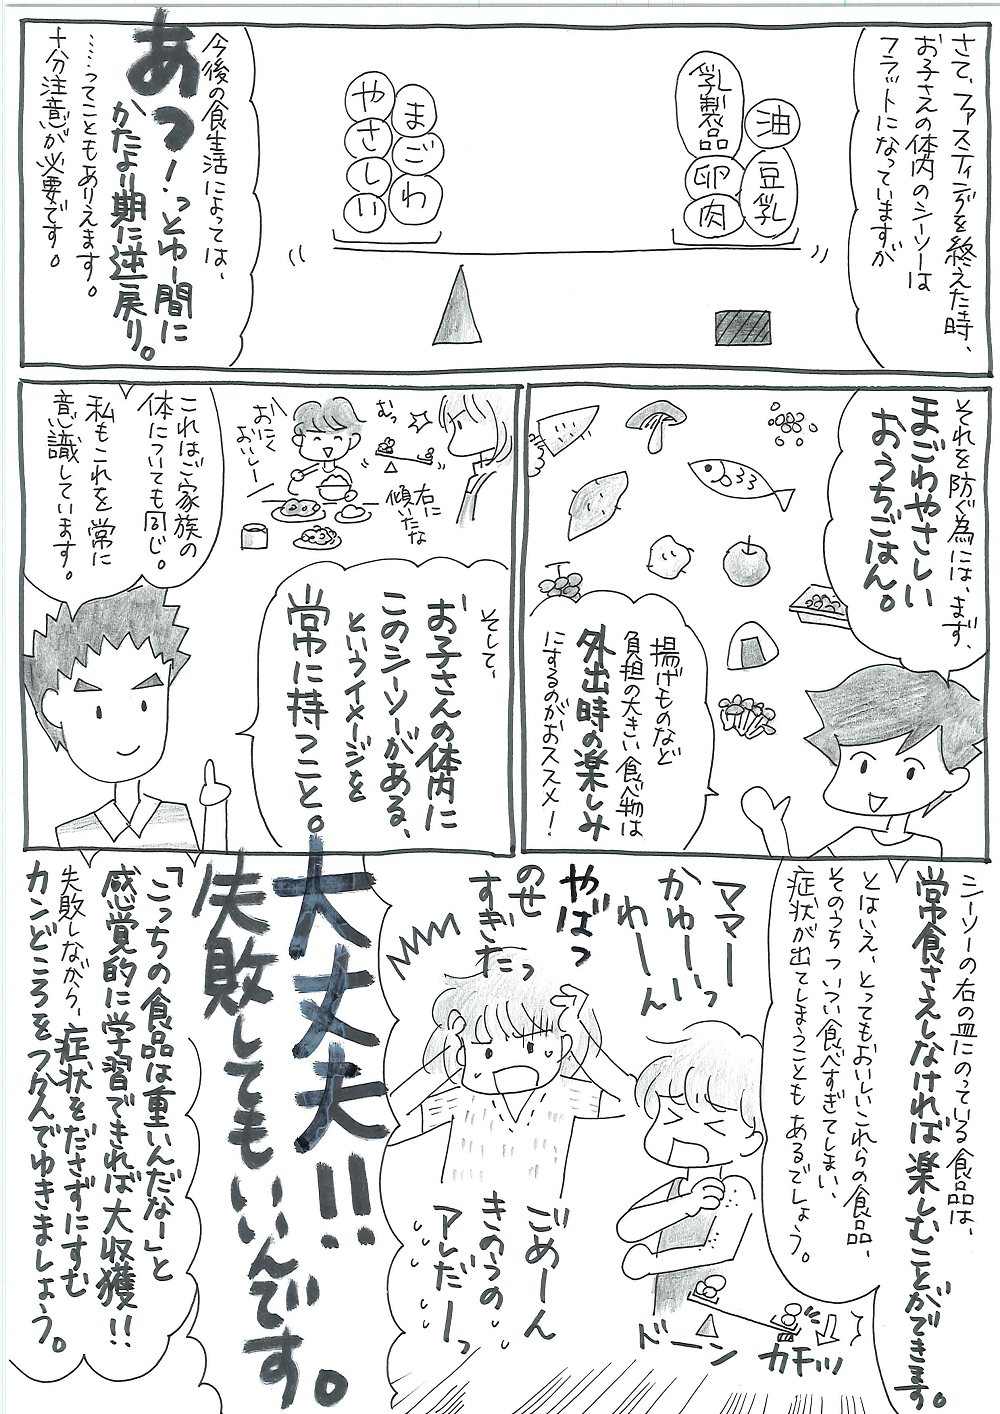 さて、ファスティングを終えた時、
お子さんの体内のシーソーは
フラットになっていますが
油
豆乳
乳製品
卵
肉
まごわ
やさしい
今後の食生活によっては、
あっ!っとゆー間に
かたより期に逆戻り。
……ってこともありえます。
十分注意が必要です。
それを防ぐ為には、まず、
まごわやさしい
おうちごはん。
揚げものなど
負担の大きい食べ物は
外出時の楽しみ
にするのがおススメ!
右に
傾いたな
むっ
おにく
おいしー
そして、
お子さんの体内に
このシーソーがある、
というイメージを
常に持つこと。
これはご家族の
体についても同じ。
私もこれを常に
意識しています。
シーソーの右の皿にのっている食品は、
常食さえしなければ楽しむことができます。
とはいえ、とってもおいしいこれらの食品、
そのうちついつい食べすぎてしまい、
症状が出てしまうこともあるでしょう。
ママー
かゆーいっ
わーーん
やばっ
のせ
すぎたっ
ごめーん
きのうの
アレだーっ
ドーン
カチッ
大丈夫!!
失敗してもいいんです。
「こっちの食品は重いんだなー」と
感覚的に学習できれば大収獲!!
失敗しながら、症状をださずにすむ
カンどころをつかんでゆきましょう。